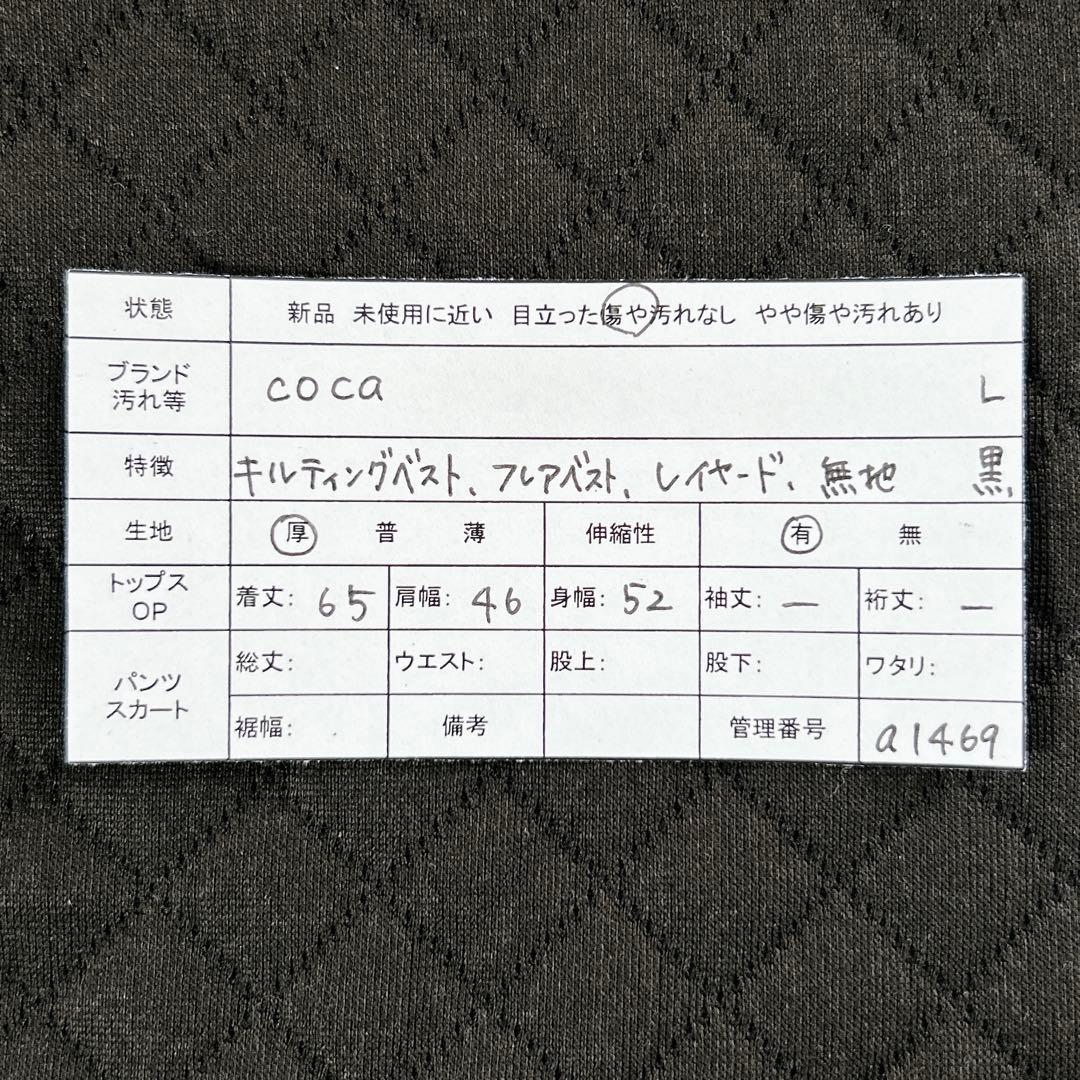 状態 新品 未使用に近い 目立った傷や汚れなし やや傷や汚れあり
ブランド
汚れ等 coca L
特徴 キルティングベスト、フレアベスト、レイヤード、無地 黒、
生地 厚 普 薄 伸縮性 有 無
トップス
OP 着丈: 65 肩幅: 46 身幅: 52 袖丈: — 裄丈: —
パンツ
スカート 総丈: ウエスト: 股上: 股下: ワタリ:
裾幅: 備考 管理番号 a1469